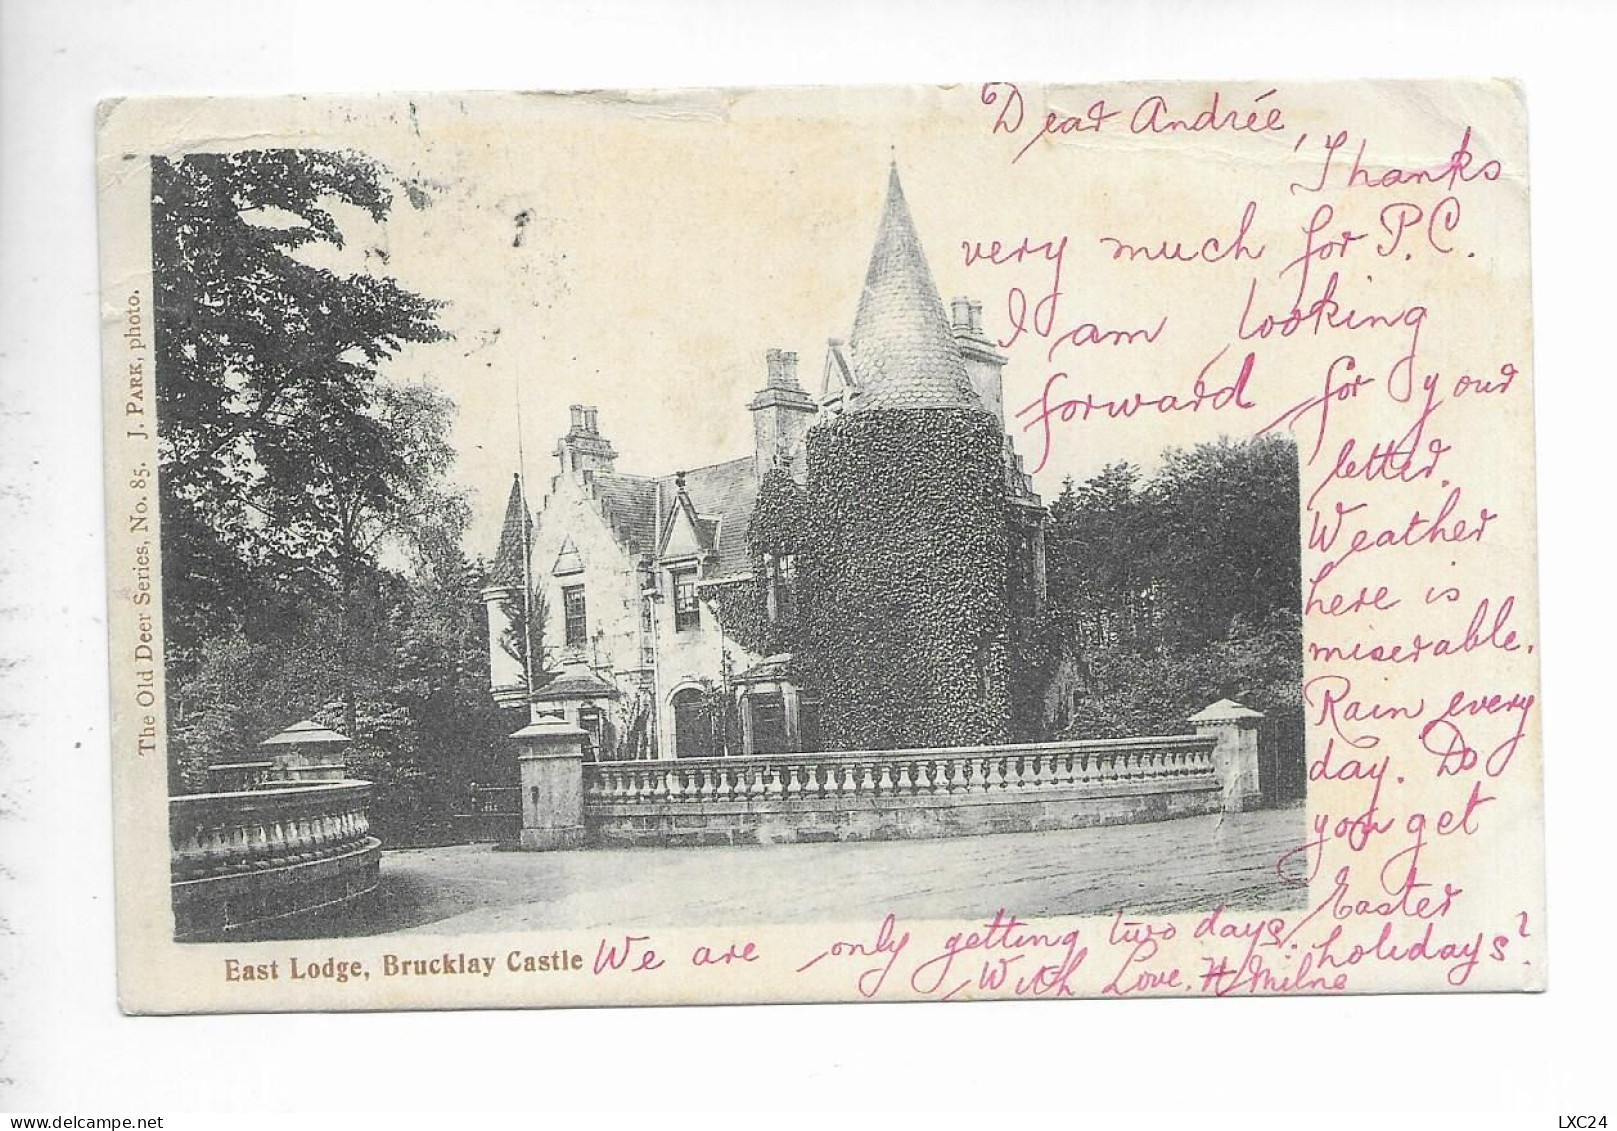 Dear Andrée,
Thanks
very much for P.C.
I am looking
forward for your
letter.
Weather
here is
miserable.
Rain every
day. Do
you get
Easter
holidays?
We are only getting two days.
With Love. H Milne
The Old Deer Series, No. 85. J. PARK, photo.
East Lodge, Brucklay Castle
LXC24